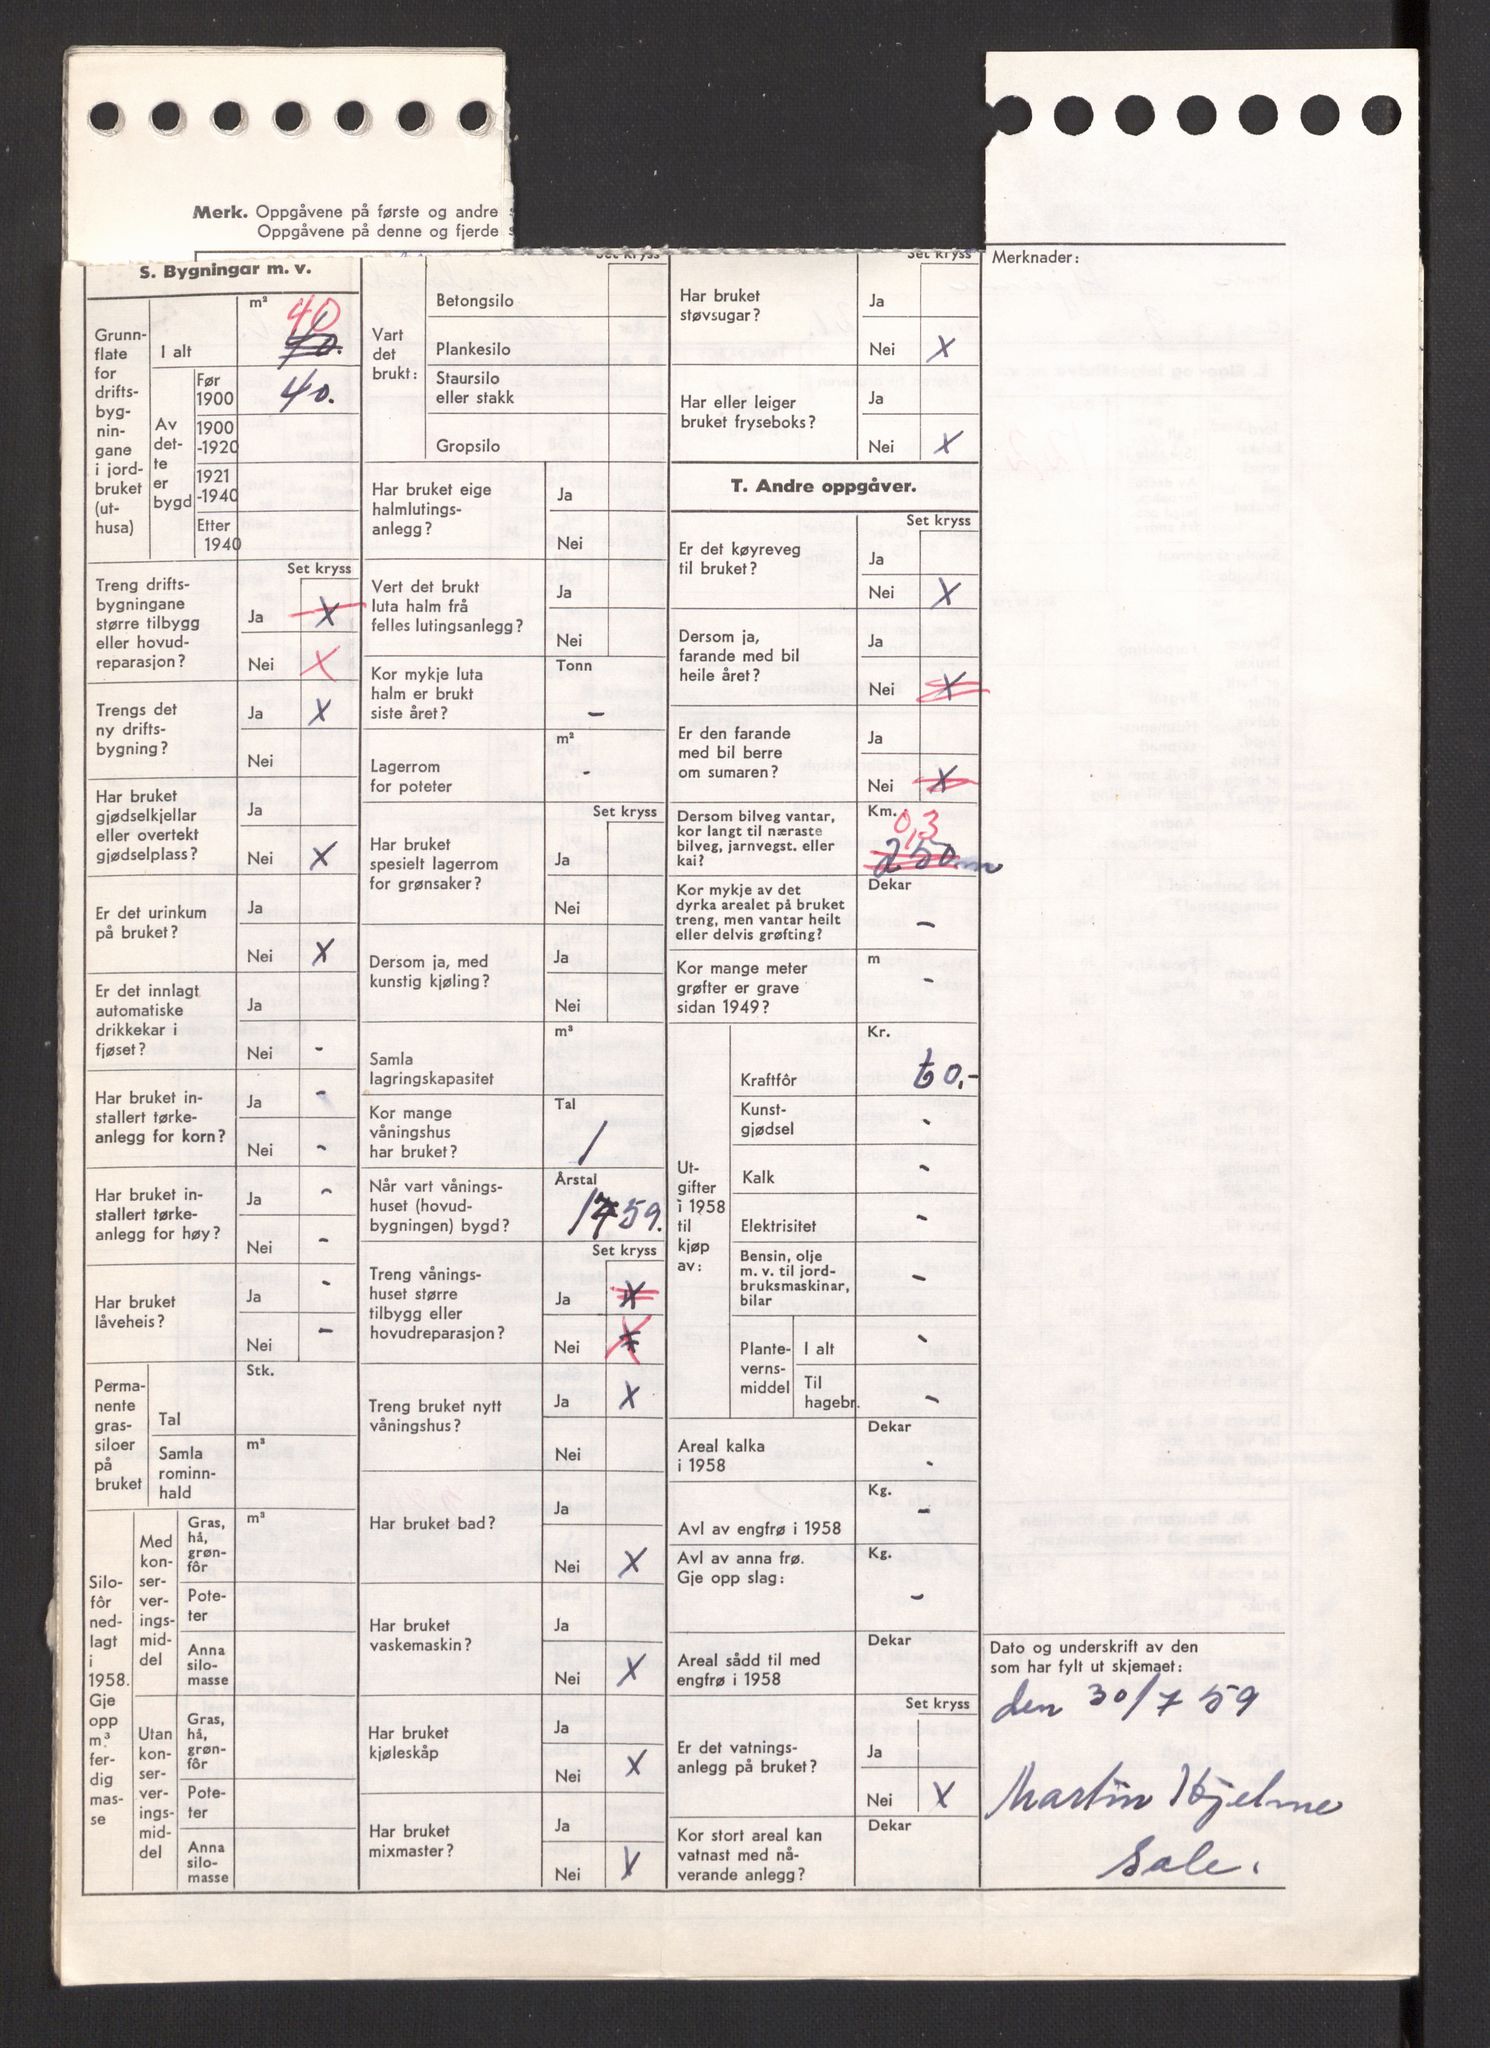 Merk. Oppgåvene på første og andre
Oppgåvene på denne og fjerde
S. Bygningar m. v.
Grunn-
flate
for
drifts-
byg-
nin-
gane
i jord-
bruket
(ut-
husa)
m²
I alt
40
Av
det-
te
er
bygd
Før
1900
40.
1900
-1920
1921
-1940
Etter
1940
Set kryss
Treng drifts-
bygningane
større tilbygg
eller hovud-
reparasjon?
Ja X
Nei X
Trengs det
ny drifts-
bygning?
Ja X
Nei
Har bruket
gjødselkjellar
eller overtekt
gjødselplass?
Ja
Nei X
Er det urinkum
på bruket?
Ja
Nei X
Er det innlagt
automatiske
drikkekar i
fjøset?
Ja
Nei -
Har bruket in-
stallert tørke-
anlegg for korn?
Ja -
Nei -
Har bruket in-
stallert tørke-
anlegg for høy?
Ja -
Nei -
Har bruket
låveheis?
Ja -
Nei -
Perma-
nente
gras-
siloer
på
bruket
Stk.
Tal
m³
Samla
rominn-
hald
Silo-
fôr
ned-
lagt
i
1958.
Gje
opp
m³
fer-
dig
mas-
se
Med
kon-
ser-
ver-
ings-
mid-
del
Gras,
hå,
grøn-
fôr
m³
Pote-
ter
Anna
silo-
masse
Utan
kon-
ser-
ver-
ings-
mid-
del
Gras,
hå,
grøn-
fôr
Pote-
ter
Anna
silo-
masse
Set kryss
Vart
det
brukt:
Betongsilo
Plankesilo
Staursilo
eller stakk
Gropsilo
Har bruket eige
halmlutings-
anlegg?
Ja
Nei
Vert det brukt
luta halm frå
felles lutingsanlegg?
Ja
Nei
Kor mykje luta
halm er brukt
siste året?
Tonn
-
Lagerrom
for poteter
m²
-
Set kryss
Har bruket
spesielt lagerrom
for grønsaker?
Ja
Nei
Dersom ja, med
kunstig kjøling?
Ja
Nei
Samla
lagringskapasitet
m³
Kor mange
våningshus
har bruket?
Tal
1
Når vart vånings-
huset (hovud-
bygningen) bygd?
Årstal
1759.
Set kryss
Treng vånings-
huset større
tilbygg eller
hovudreparasjon?
Ja X
Nei X
Treng bruket nytt
våningshus?
Ja X
Nei
Har bruket bad?
Ja
Nei X
Har bruket
vaskemaskin?
Ja
Nei X
Har bruket
kjøleskåp
Ja
Nei X
Har bruket
mixmaster?
Ja
Nei X
Set kryss
Har bruket
støvsugar?
Ja
Nei X
Har eller leiger
bruket fryseboks?
Ja
Nei X
T. Andre oppgåver.
Set kryss
Er det køyreveg
til bruket?
Ja
Nei X
Dersom ja,
farande med bil
heile året?
Ja
Nei X
Er den farande
med bil berre
om sumaren?
Ja
Nei X
Dersom bilveg vantar,
kor langt til næraste
bilveg, jarnvegst. eller
kai?
Km.
0,3
250m
Kor mykje av det
dyrka arealet på bruket
treng, men vantar heilt
eller delvis grøfting?
Dekar
-
Kor mange meter
grøfter er grave
sidan 1949?
m
-
Ut-
gifter
i 1958
til
kjøp
av:
Kr.
Kraftfôr
60,-
Kunst-
gjødsel -
Kalk -
Elektrisitet -
Bensin, olje
m. v. til jord-
bruksmaskinar,
bilar -
Plante-
verns-
middel
I alt -
Til
hagebr. -
Areal kalka
i 1958
Dekar
-
Avl av engfrø i 1958
Kg.
-
Avl av anna frø.
Gje opp slag:
Kg.
-
Areal sådd til med
engfrø i 1958
Dekar
Set kryss
Er det vatnings-
anlegg på bruket?
Ja
Nei X
Kor stort areal kan
vatnast med nå-
verande anlegg?
Dekar
Merknader:
Dato og underskrift av den
som har fylt ut skjemaet:
den 30/7 59
Martin Hjelme
Sale.